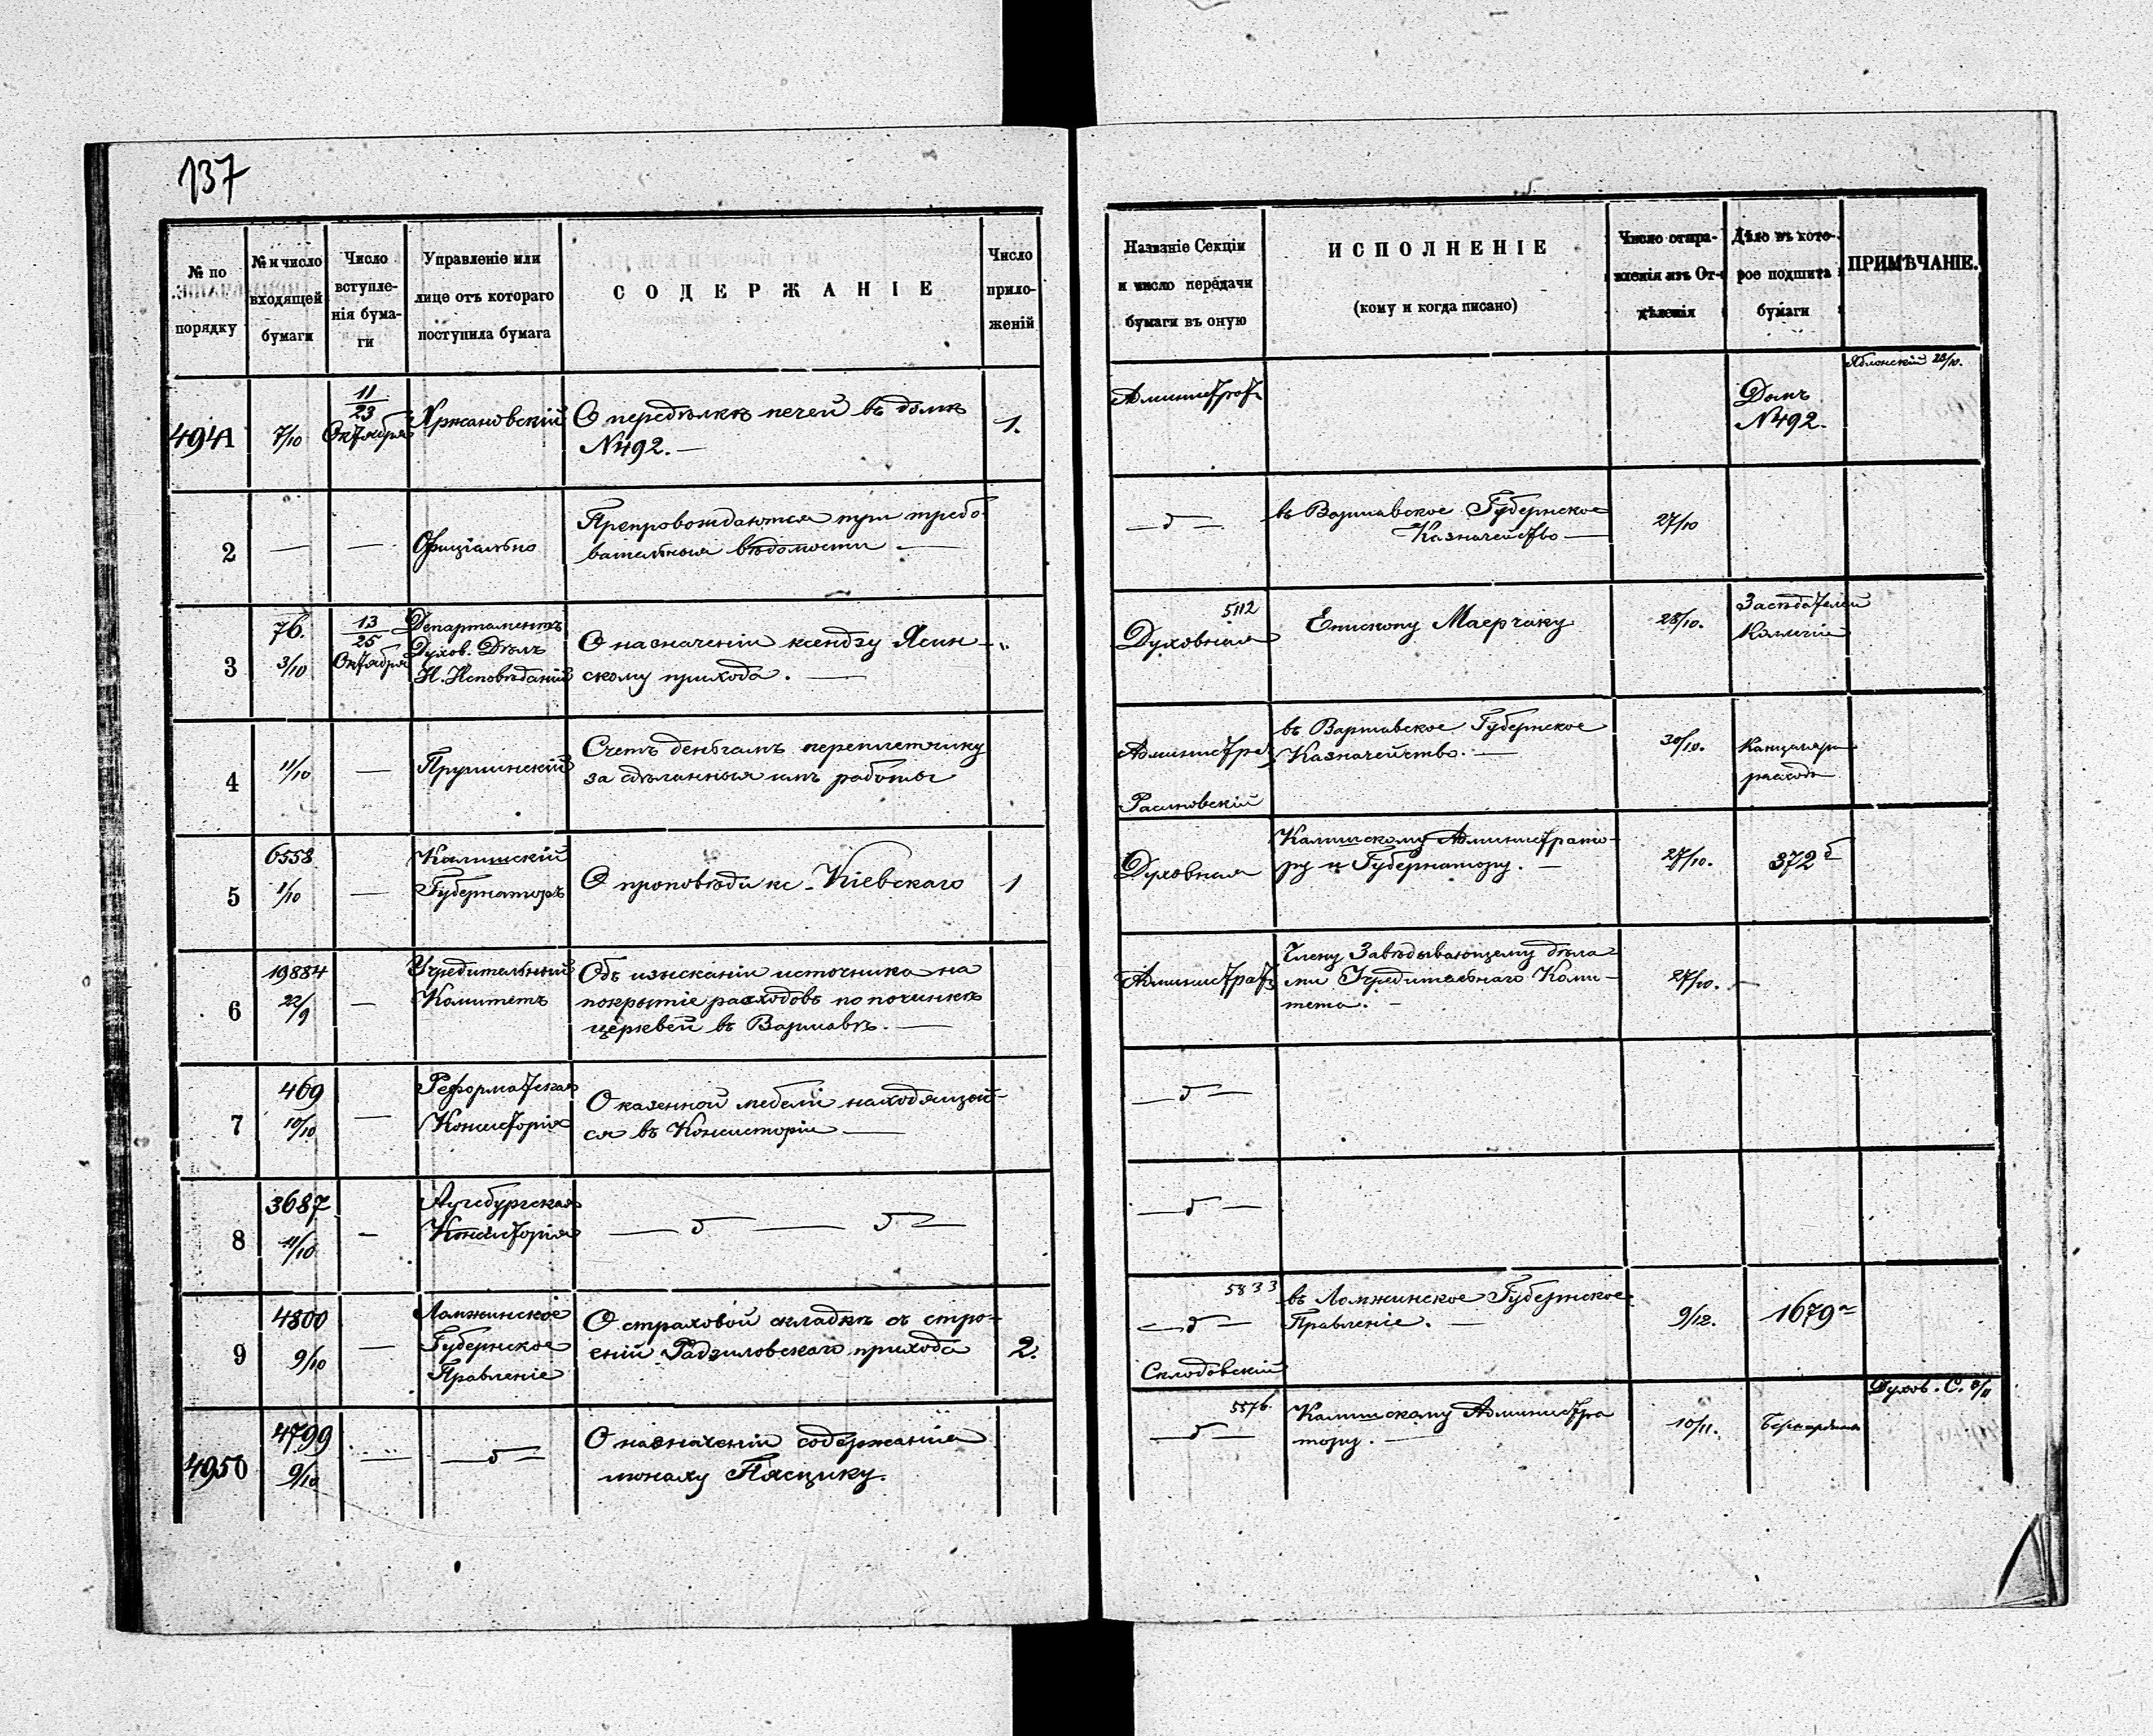 137
№ по порядку
№ и число входящей бумаги
Число вступле-нія бума-ги
Управленіе или лице отъ котораго поступила бумага
СОДЕРЖАНІЕ
Число прило-женій
Названіе Секціи и число передачи бумаги въ оную
ИСПОЛНЕНІЕ
(кому и когда писано)
Число отпра-вленія изъ От-дѣленія
Дѣло въ кото-рое подшита бумаги
ПРИМѢЧАНІЕ.
4941
7/10
11/23 Октября
Хржановскій
О передѣлкѣ печей въ домѣ
№492. —
1.
Администрат
Домъ
№492.
Яблонскій 28/10.
2
—
—
Офиціально
Препровождаются при требо-
вательныя вѣдомости —
— „ —
въ Варшавское Губернское
Казначейство —
27/10
3
76.
3/10
13/25 Октября
Департаментъ
Духов. Дѣлъ
И. Исповѣданій
О назначеніи ксендзу Ясин-
скому прихода. —
„
5112
Духовная
Епископу Маерчаку
28/10.
Засѣдатели
Колегіи
4
11/10
—
Прушинскій
Счетъ деньгамъ переплетчику
за сдѣланныя имъ работы
Администра
въ Варшавское Губернское
Казначейство. —
30/10.
Канцеляр
расходы
5
6558
1/10
—
Калишскій
Губернаторъ
О проповѣди кс. Кіевскаго
1
Духовная
Калишскому Администрато-
ру и Губернатору. —
27/10.
372 б
6
19884
22/9
—
Учредительный
Комитетъ
Объ изысканіи источника на
покрытіе расходовъ по починкѣ
церквей въ Варшавѣ. —
Администрат
Члену Завѣдывающему дѣла-
ми Учредительнаго Коми-
тета. —
27/10.
—
7
469
10/10
—
Реформатская
Консисторія
О казенной мебели находящей-
ся въ Консисторіи —
— „ —
8
3687
11/10
—
Аугсбургская
Консисторія
— „ — „ —
— „ —
9
4800
9/10
—
Ломжинское
Губернское
Правленіе
О страховой складкѣ съ стро-
еній Радзиловскаго прихода
2.
5833
— „ —
въ Ломжинское Губернское
Правленіе. —
9/12.
1679
4950
4799
9/10
—
— „ —
О назначеніи содержанія
монаху Пясцику.
Склодовскій
5576.
— „ —
Калишскому Администра
тору. —
10/11.
Духов. С.